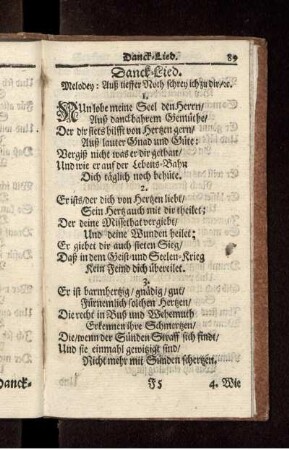 Danck-Lied. 89
Danck-Lied.
Melodey: Auß tieffer Noth schrey ich zu dir/ꝛc.
1.
NUn lobe meine Seel den Herrn/
Auß danckbahrem Gemüthe/
Der dir stets hilfft von Hertzen gern/
Auß lauter Gnad und Güte:
Vergiß nicht was er dir gethan/
Und wie er auf der Lebens-Bahn
Dich täglich noch behüte.
2.
Er ists/der dich von Hertzen liebt/
Sein Hertz auch mit dir theilet;
Der deine Missethat vergiebt/
Und deine Wunden heilet;
Er giebet dir auch steten Sieg/
Daß in dem Geist- und Seelen-Krieg
Kein Feind dich übereilet.
3.
Er ist barmhertzig/gnädig/gut/
Fürnemlich solchen Hertzen/
Die recht in Buß und Wehemuth
Erkennen ihre Schmertzen/
Die/wenn der Sünden Straff sich findt/
Und sie einmahl gewitzigt sind/
Nicht mehr mit Sünden schertzen.
4. Wie
Danck-